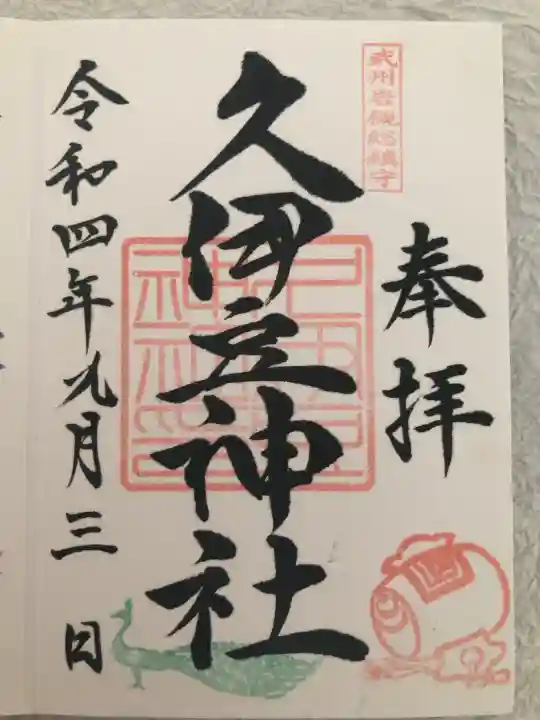 武州岩槻総鎮守
奉拝
久伊豆神社
令和四年九月三日